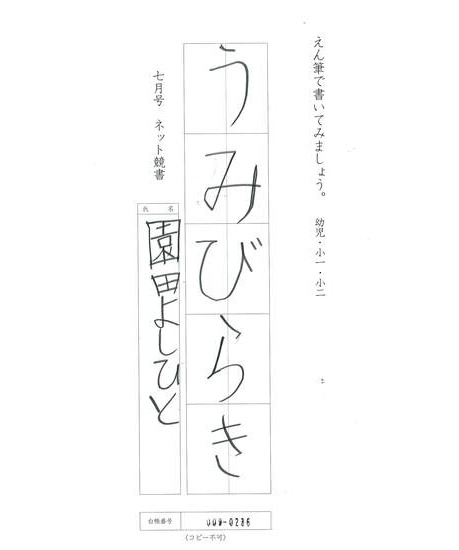 えん筆で書いてみましょう。 幼児・小一・小二
うみびらき
七月号 ネット競書
氏名
園田よしひと
台帳番号
(コピー不可)